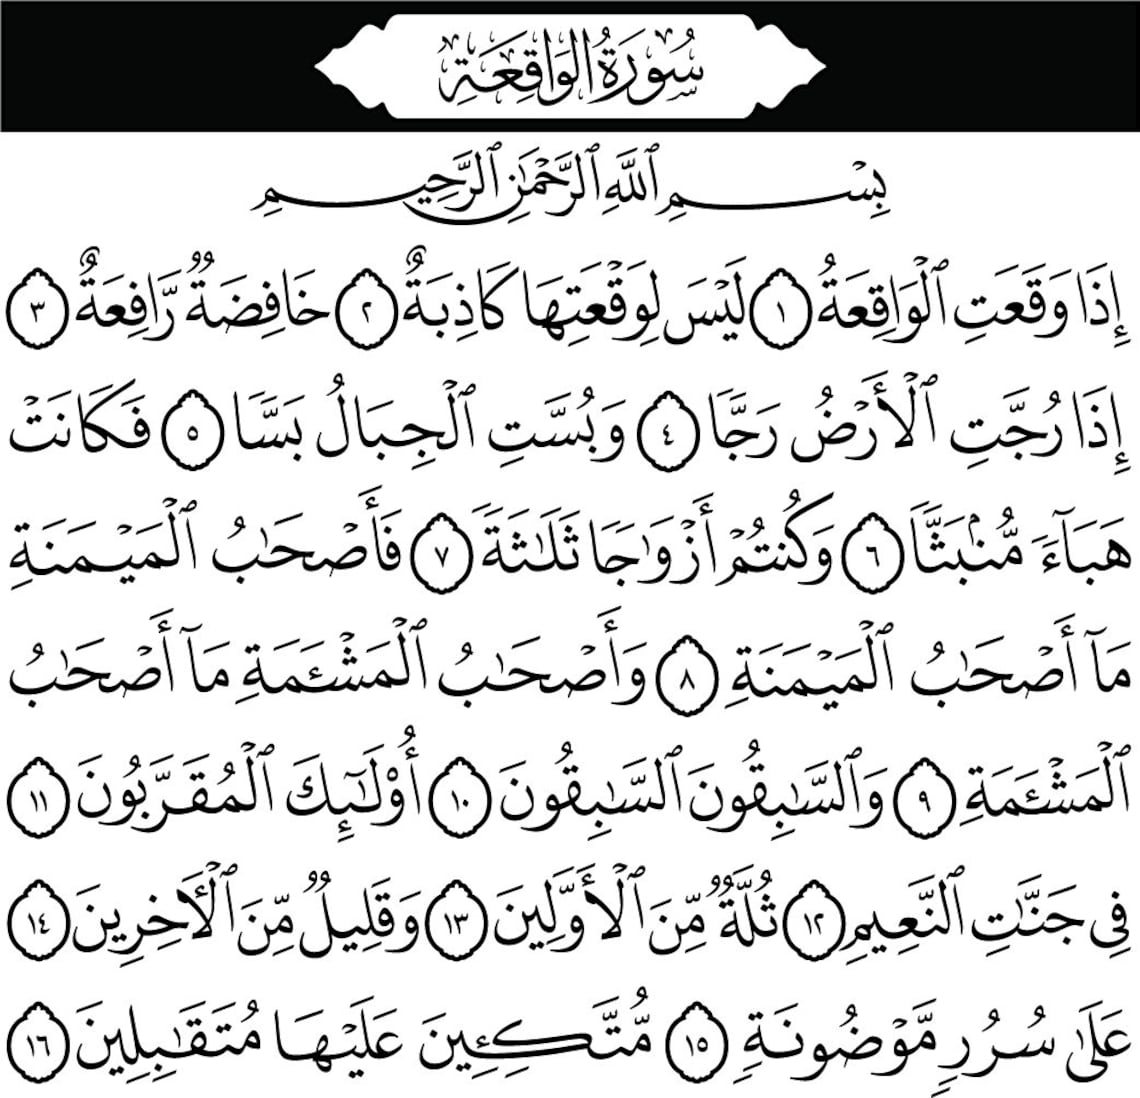 سُورَةُ الوَاقِعَةِ
بِسْمِ ٱللَّهِ ٱلرَّحْمَٰنِ ٱلرَّحِيمِ
إِذَا وَقَعَتِ ٱلْوَاقِعَةُ ١ لَيْسَ لِوَقْعَتِهَا كَاذِبَةٌ ٢ خَافِضَةٌ رَّافِعَةٌ ٣
إِذَا رُجَّتِ ٱلْأَرْضُ رَجًّا ٤ وَبُسَّتِ ٱلْجِبَالُ بَسًّا ٥ فَكَانَتْ
هَبَآءً مُّنۢبَثًّا ٦ وَكُنتُمْ أَزْوَٰجًا ثَلَٰثَةً ٧ فَأَصْحَٰبُ ٱلْمَيْمَنَةِ
مَآ أَصْحَٰبُ ٱلْمَيْمَنَةِ ٨ وَأَصْحَٰبُ ٱلْمَشْـَٔمَةِ مَآ أَصْحَٰبُ
ٱلْمَشْـَٔمَةِ ٩ وَٱلسَّٰبِقُونَ ٱلسَّٰبِقُونَ ١٠ أُو۟لَٰٓئِكَ ٱلْمُقَرَّبُونَ ١١
فِى جَنَّٰتِ ٱلنَّعِيمِ ١٢ ثُلَّةٌ مِّنَ ٱلْأَوَّلِينَ ١٣ وَقَلِيلٌ مِّنَ ٱلْـَٔاخِرِينَ ١٤
عَلَىٰ سُرُرٍ مَّوْضُونَةٍ ١٥ مُّتَّكِـِٔينَ عَلَيْهَا مُتَقَٰبِلِينَ ١٦